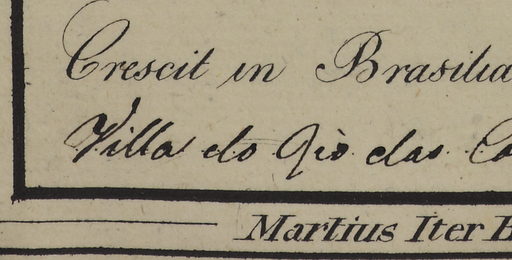 Crescit in Brasilia
Villa do Rio das Co
Martius Iter B